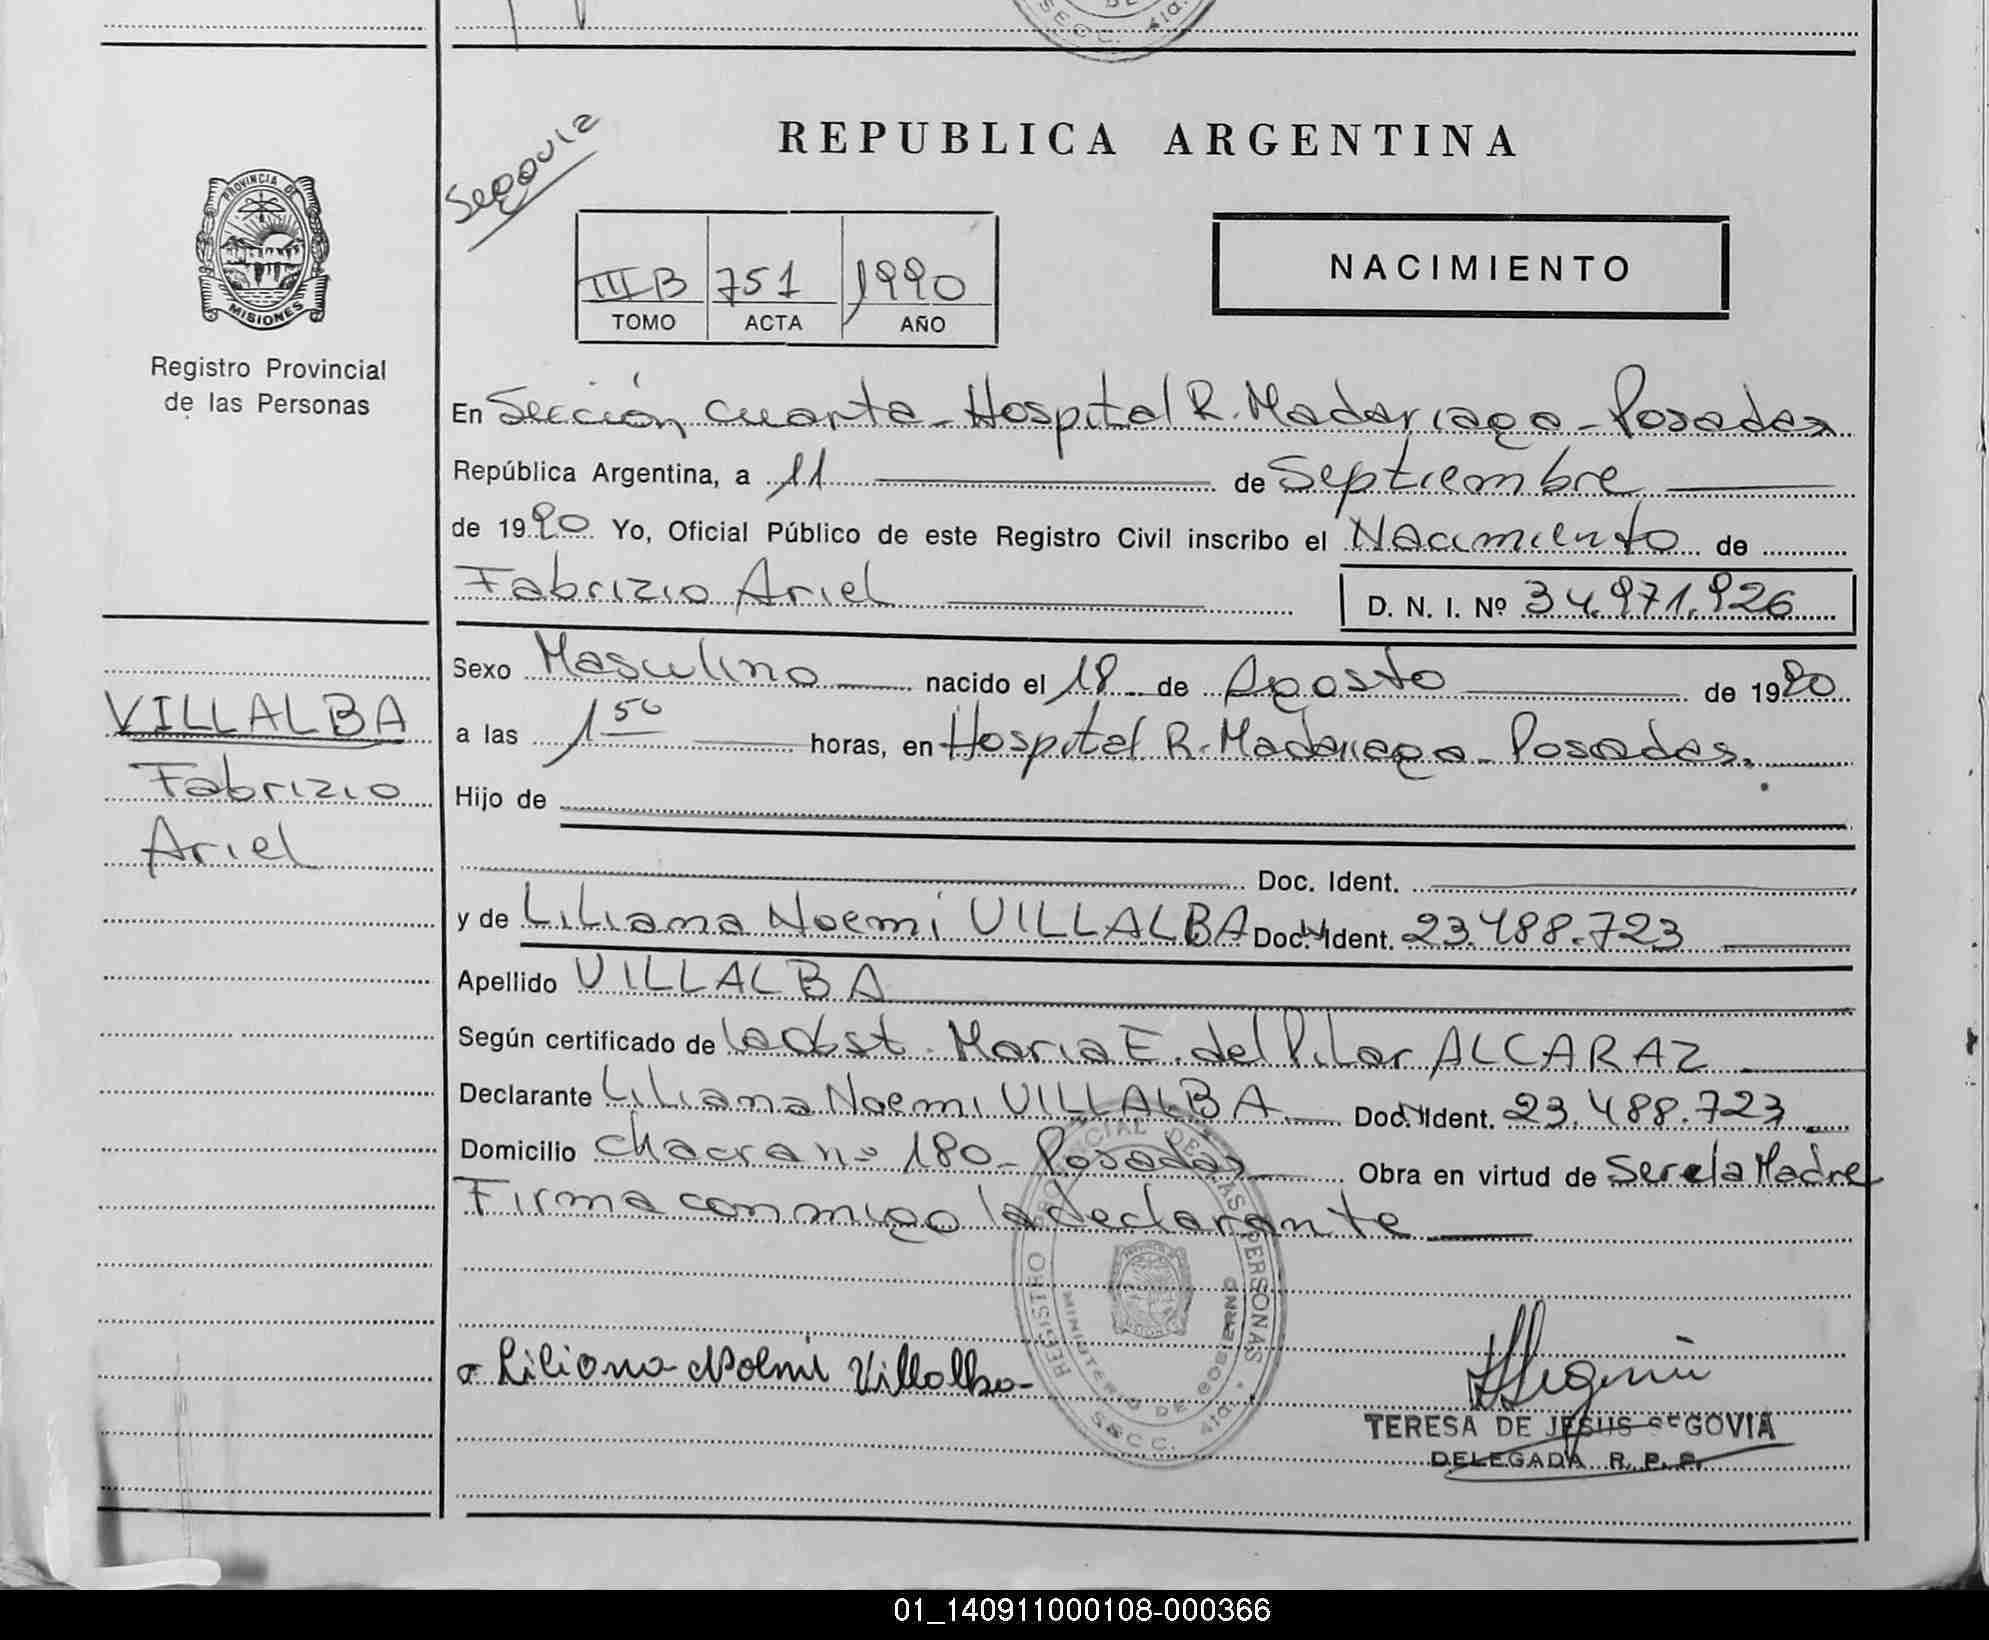 SECC. 4ta.
Segovia
REPUBLICA ARGENTINA
PROVINCIA DE
MISIONES
Registro Provincial
de las Personas
IIIB 751 1990
TOMO ACTA AÑO
NACIMIENTO
En Sección cuarta - Hospital R. Madariaga - Posadas
República Argentina, a 11 de Septiembre
de 1990 Yo, Oficial Público de este Registro Civil inscribo el Nacimiento de
Fabrizio Ariel D. N. I. Nº 34.971.926
Sexo Masculino nacido el 18 de Agosto de 1990
a las 1 50 horas, en Hospital R. Madariaga - Posadas.
VILLALBA
Fabrizio
Ariel
Hijo de
Doc. Ident.
y de Liliana Noemi VILLALBA Doc. Ident. 23.488.723
Apellido VILLALBA
Según certificado de la obst. Maria E. del Pilar ALCARAZ
Declarante Liliana Noemi VILLALBA Doc. Ident. 23.488.723
Domicilio chacra nº 180 - Posadas Obra en virtud de Ser ela Madre
Firma conmigo la declarante
REGISTRO PROVINCIAL DE LAS PERSONAS
MINISTERIO DE GOBIERNO
SECC. 4ta.
Liliana Noemi Villalba
TERESA DE JESUS SEGOVIA
DELEGADA R. P. P.
01_140911000108-000366